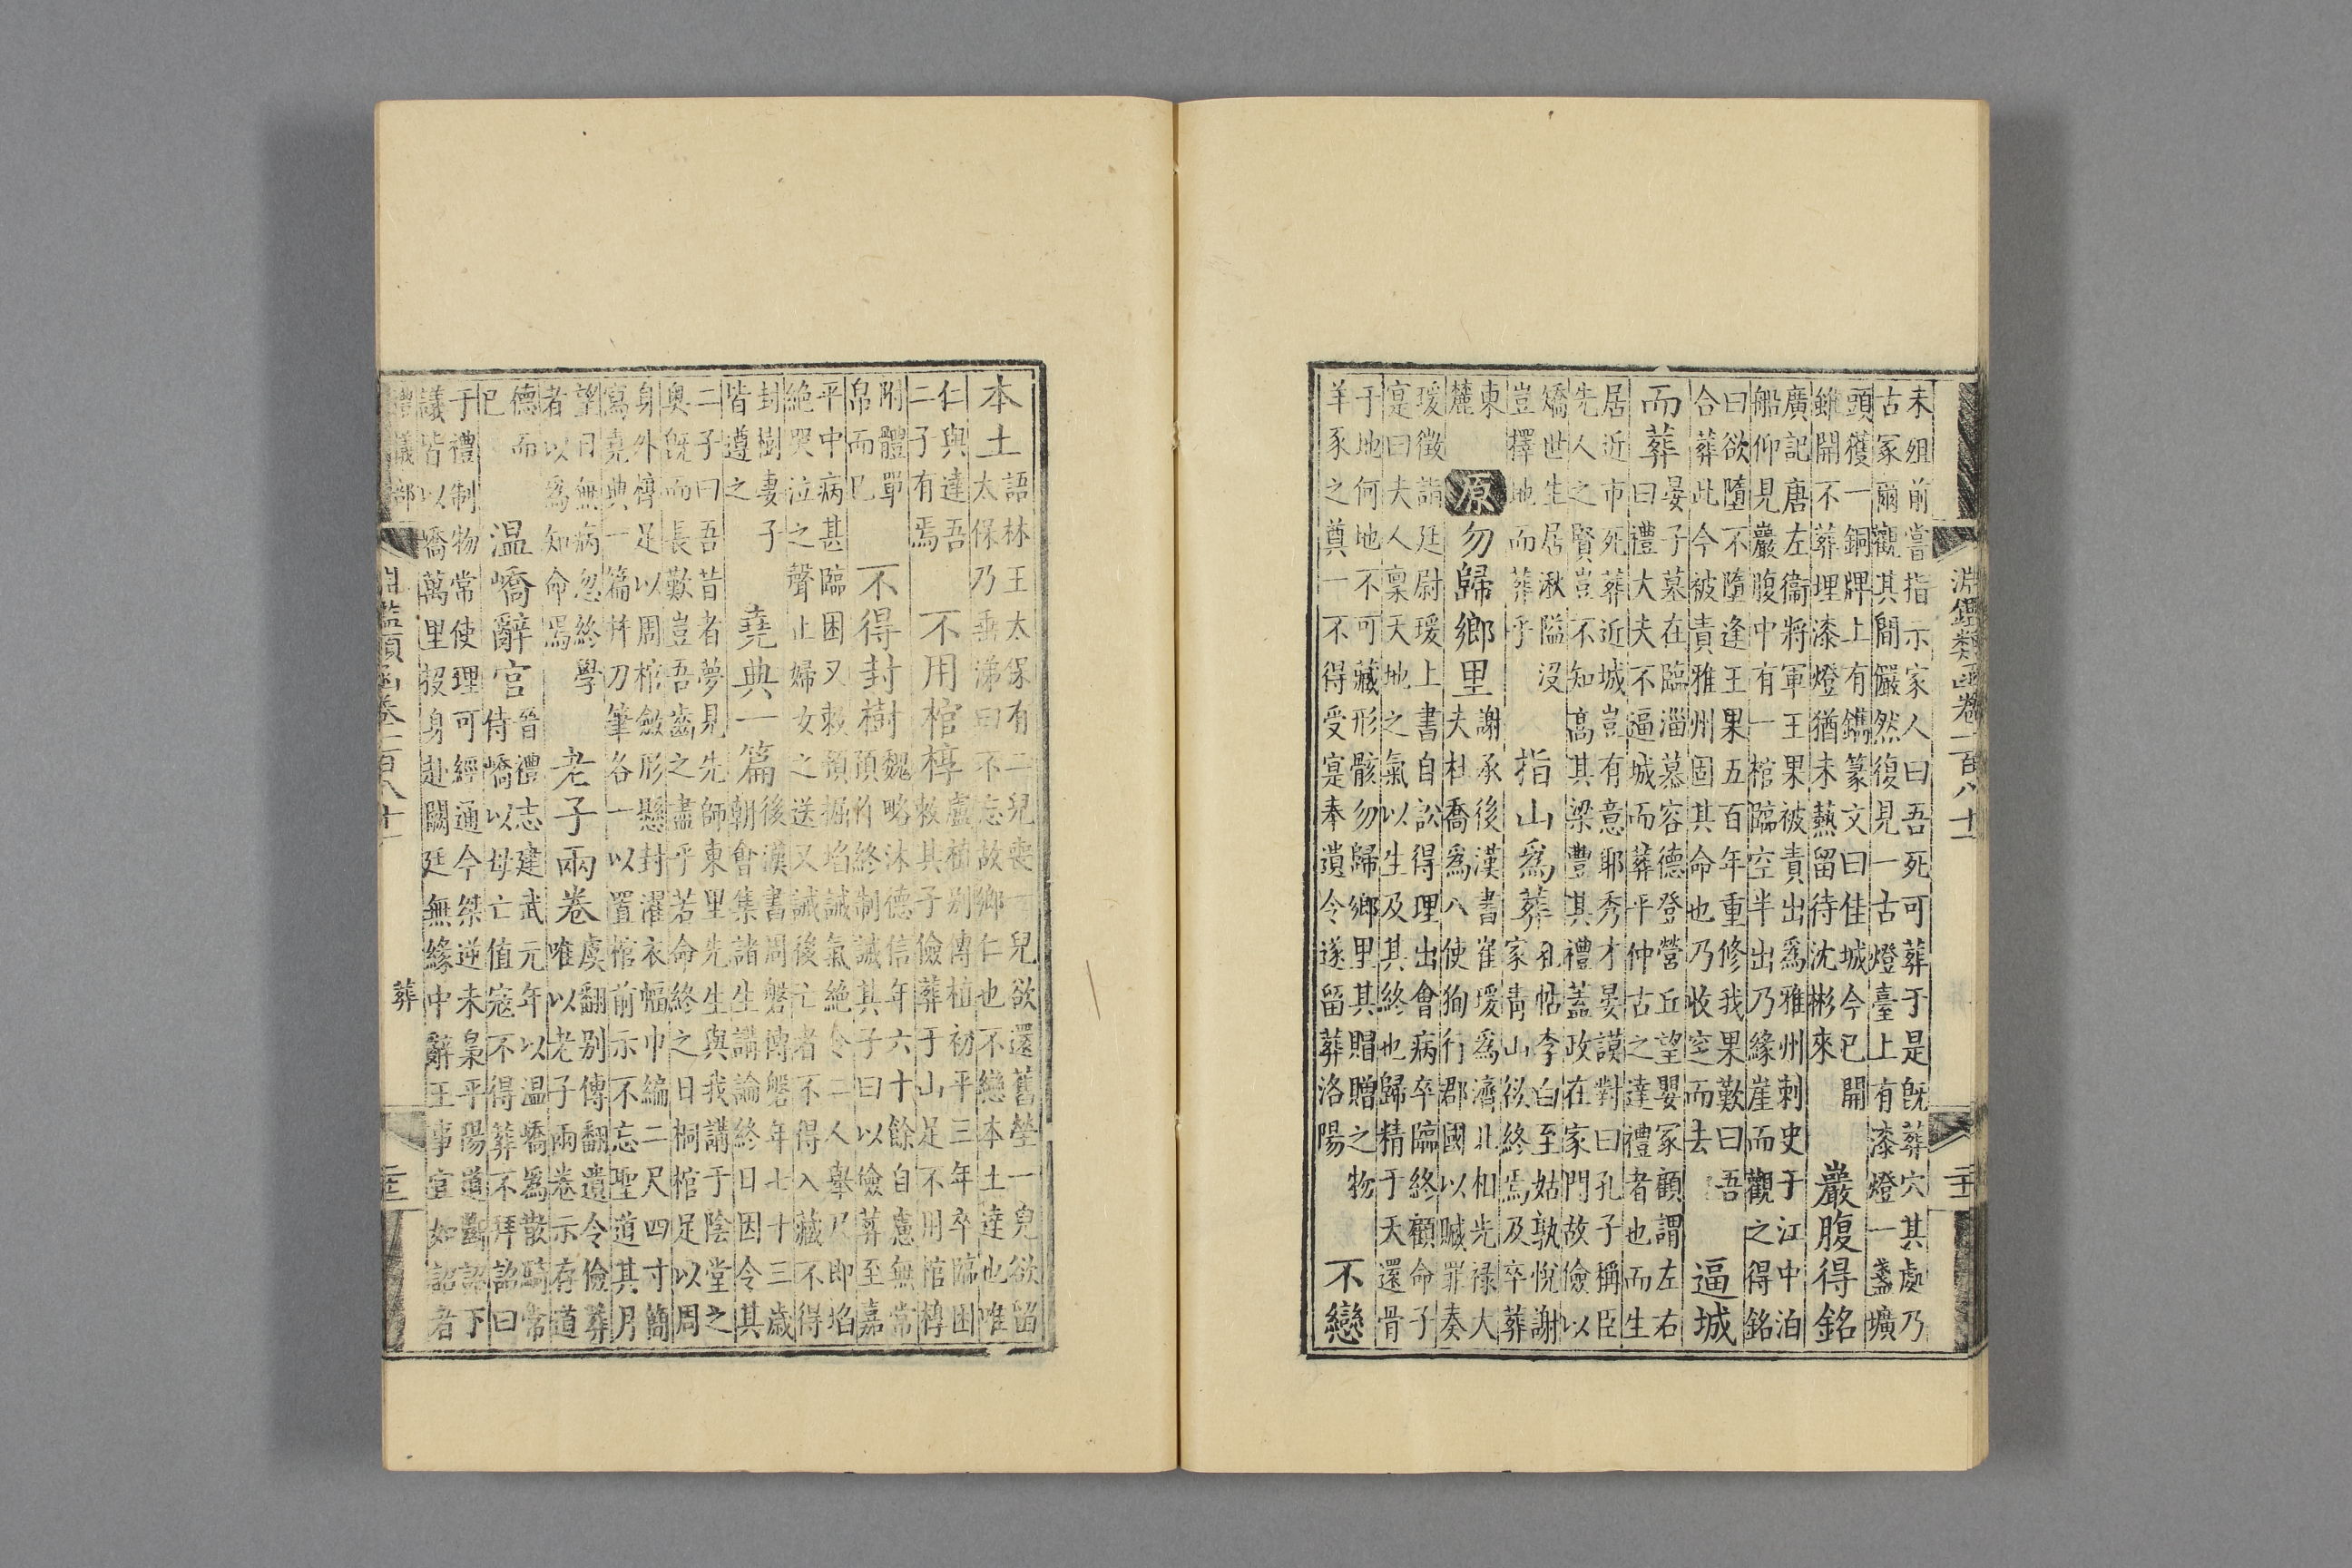 淵鑑類函卷一百八十一
未殂前嘗指示家人曰吾死可葬于是旣葬穴其處乃
古冢爾觀其間儼然復見一古燈臺上有漆燈一盞壙
頭獲一銅牌上有鐫篆文曰佳城今已開
雖開不葬埋漆燈猶未爇留待沈彬來
巖腹得銘
廣記唐左衞將軍王果被責出爲雅州刺史于江中泊
船仰見巖腹中有一棺臨空半出乃緣崖而觀之得銘
曰欲墮不墮逢王果五百年重修我果歎曰吾
合葬此今被責雅州固其命也乃收窆而去
逼城
而葬
晏子墓在臨淄慕容德登營丘望嬰冢顧謂左右
曰禮大夫不逼城而葬平仲古之達禮者也而生
居近市死葬近城豈有意耶秀才晏謨對曰孔子稱臣
先人之賢豈不知高其梁豐其禮蓋政在家門故儉以
矯世生居湫隘沒
豈擇地而葬乎
指山爲葬
孔帖李白至姑孰悅謝
家靑山欲終焉及卒葬
東
麓
原
勿歸鄉里
謝承後漢書崔瑗爲濟北相光祿大
夫杜喬爲八使徇行郡國以贓罪奏
瑗徵詣廷尉瑗上書自訟得理出會病卒臨終顧命子
寔曰夫人稟天地之氣以生及其終也歸精于天還骨
于地何地不可藏形骸勿歸鄉里其賵贈之物
羊豕之奠一不得受寔奉遺令遂留葬洛陽
不戀
本土
語林王太保有二兒喪一兒欲還舊塋一兒欲留
太保乃垂涕曰不忘故鄉仁也不戀本土達也惟
仁與達吾
二子有焉
不用棺槨
盧植別傳植初平三年卒臨困
敕其子儉葬于山足不用棺槨
附體單
帛而已
不得封樹
魏略沐德信年六十餘自慮無常
預作終制誡其子曰以儉葬至嘉
平中病甚臨困又敕預掘埳誡氣絕令二人舉乃即埳
絕哭泣之聲止婦女之送又誡後亡者不得入藏不得
封樹妻子
皆遵之
堯典一篇
後漢書周磐傳磐年七十三歲
朝會集諸生講論終日因令其
二子曰吾昔者夢見先師東里先生與我講于陰堂之
奧旣而長歎豈吾齒之盡乎若命終之日桐棺足以周
身外槨足以周棺斂形懸封濯衣幅巾編二尺四寸簡
寫堯典一篇幷刀筆各一以置棺前示不忘聖道其月
望日無病忽終學
者以爲知命焉
老子兩卷
虞翻別傳翻遺令儉葬
唯以老子兩卷示存道
德而
已
溫嶠辭官
晉禮志建武元年以溫嶠爲散騎常
侍嶠以母亡值寇不得葬不拜詔曰
于禮制物常使理可經通今桀逆未梟平陽道斷詔下
議皆以嶠萬里投身赴闕廷無緣中辭王事宜如詔者
禮儀部
淵鑑類函卷一百八十一
葬